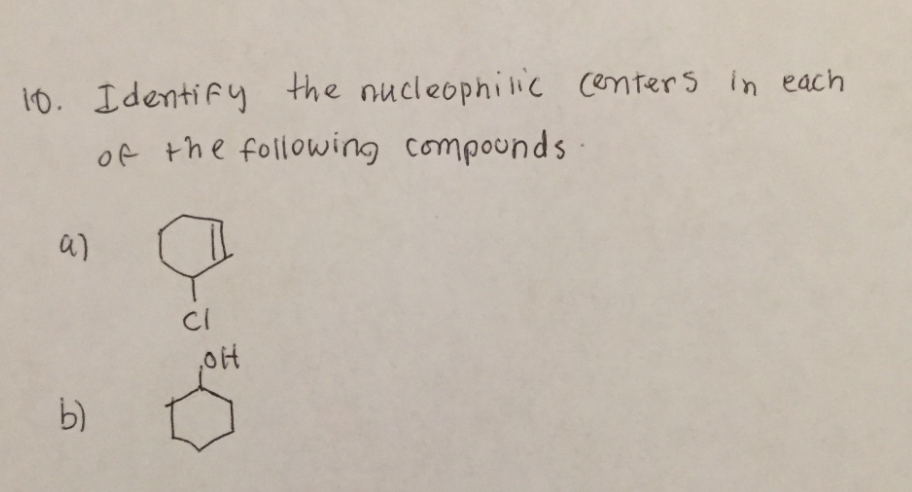 10. Identify the nucleophilic centers in each
of the following compounds.
a)
Cl
OH
b)